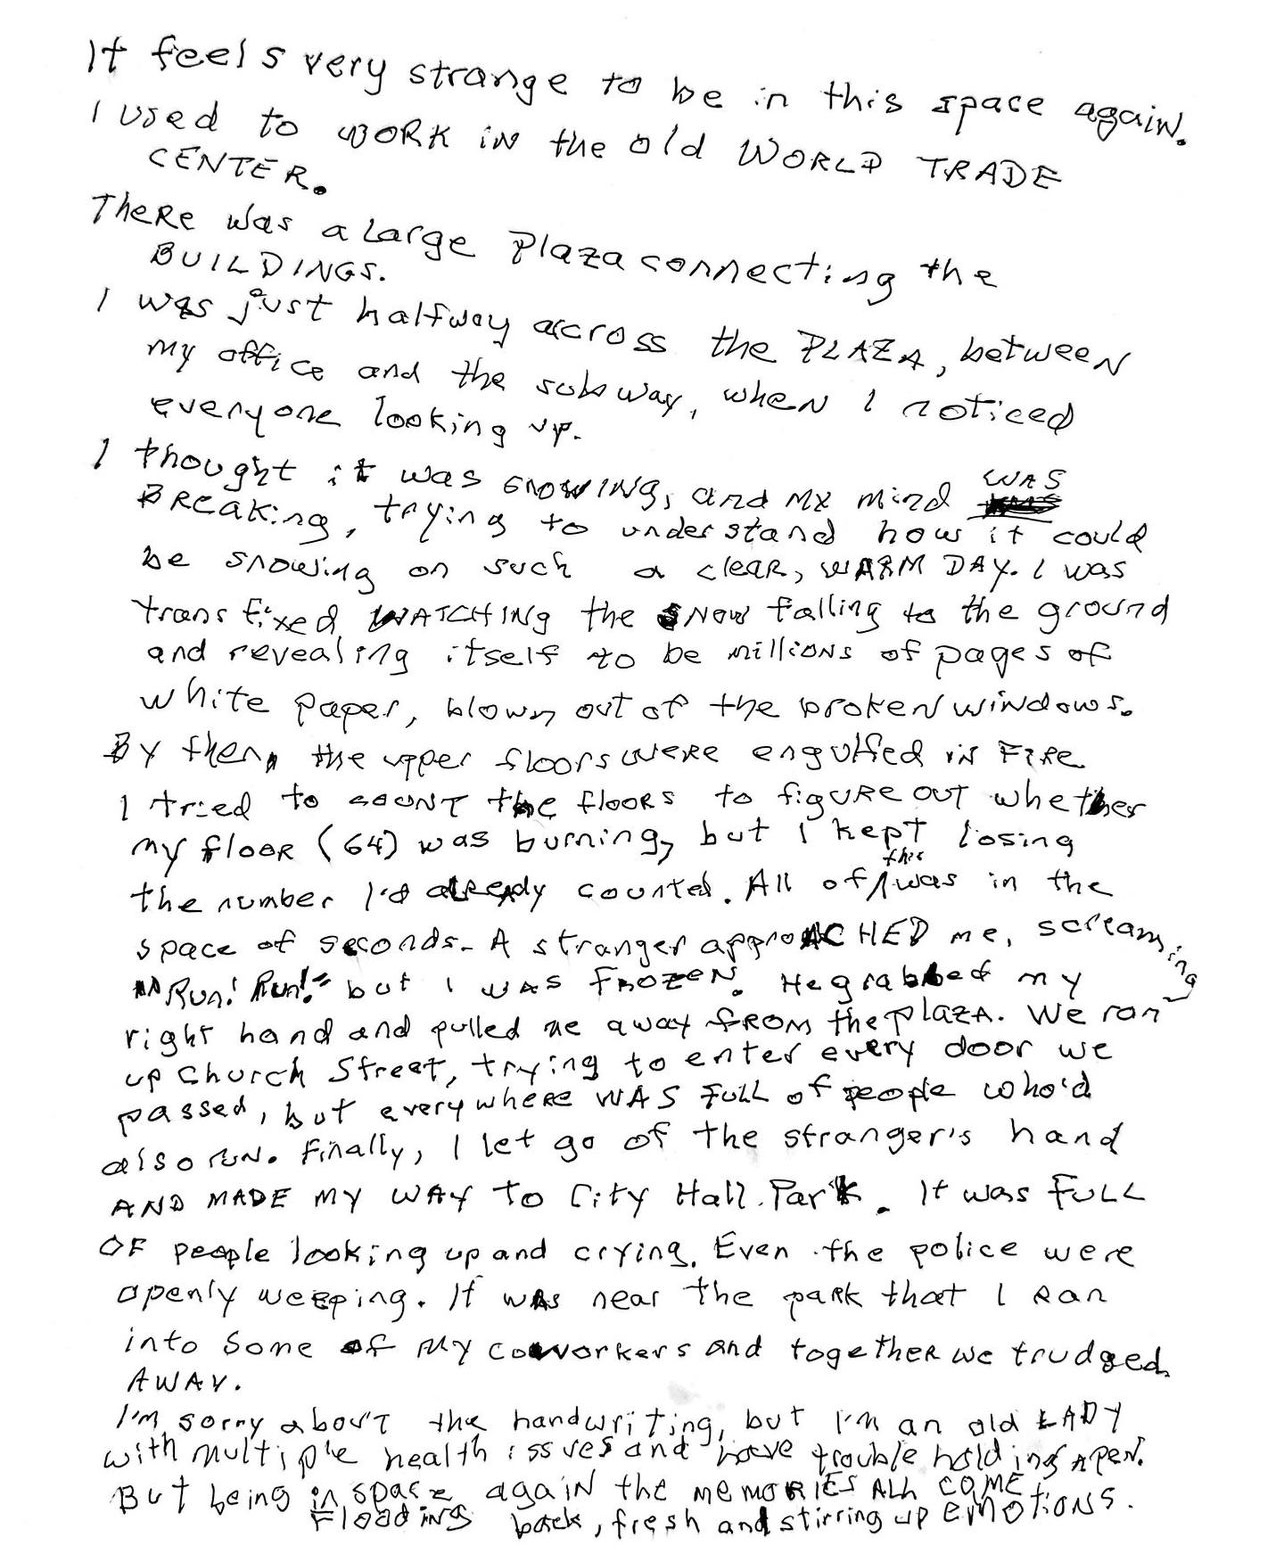 It feels very strange to be in this space again.
I used to WORK iN the old WORLD TRADE
CENTER.
TheRe was a Large Plaza connecting the
BUILDINGS.
I was just halfway across the PLAZA, between
my office and the subway, wheN I noticed
everyone looking up.
I thought it was snowING, and my mind WAS
BReaking, trying to understand how it could
be snowing on such a clear, WARM DAY. I was
transfixed WATCHING the SNow falling to the ground
and revealing itself to be millions of pages of
white paper, blown out of the brokeN windows.
By then, the upper floors weRe engulfed iN FIRE
I tried to COUNT the flooRs to figuRe out whether
my flooR (64) was burning, but I kept losing
the number I'd alReAdy counted. All of this was in the
space of seconds. A stranger approACHED me, screaming
"Run! Run!" but I wAs FRozeN. He grabbed my
right hand and pulled me away fROM the plaza. We ran
up Church Street, trying to enter every door we
passed, but everywhere WAS FULL of people who'd
also ruN. Finally, I let go of the stranger's hand
AND MADE my WAY TO City Hall Park. It was FULL
OF people looking up and crying. Even the police were
openly weeping. It wAs near the park that I Ran
into some of my coworkers and togetheR we trudged
AWAY.
I'm sorry abouT the handwriting, but I'm an old LADY
with multiple health issues and have trouble holding a pen.
But being in space again the memoRIES ALL COME
FloodiNg back, fresh and stirring up EMOTIONS.